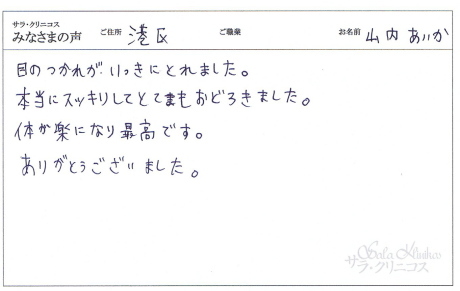 サラ・クリニコス
みなさまの声 ご住所 港区 ご職業 お名前 山内 あいか
目のつかれが いっきにとれました。
本当にスッキリしてとてまもおどろきました。
体が楽になり最高です。
ありがとうございました。
Sala Klinikos
サラ・クリニコス